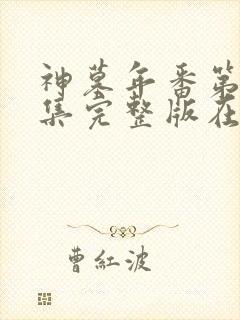 神墓年番第
集完整版在
曹紅波